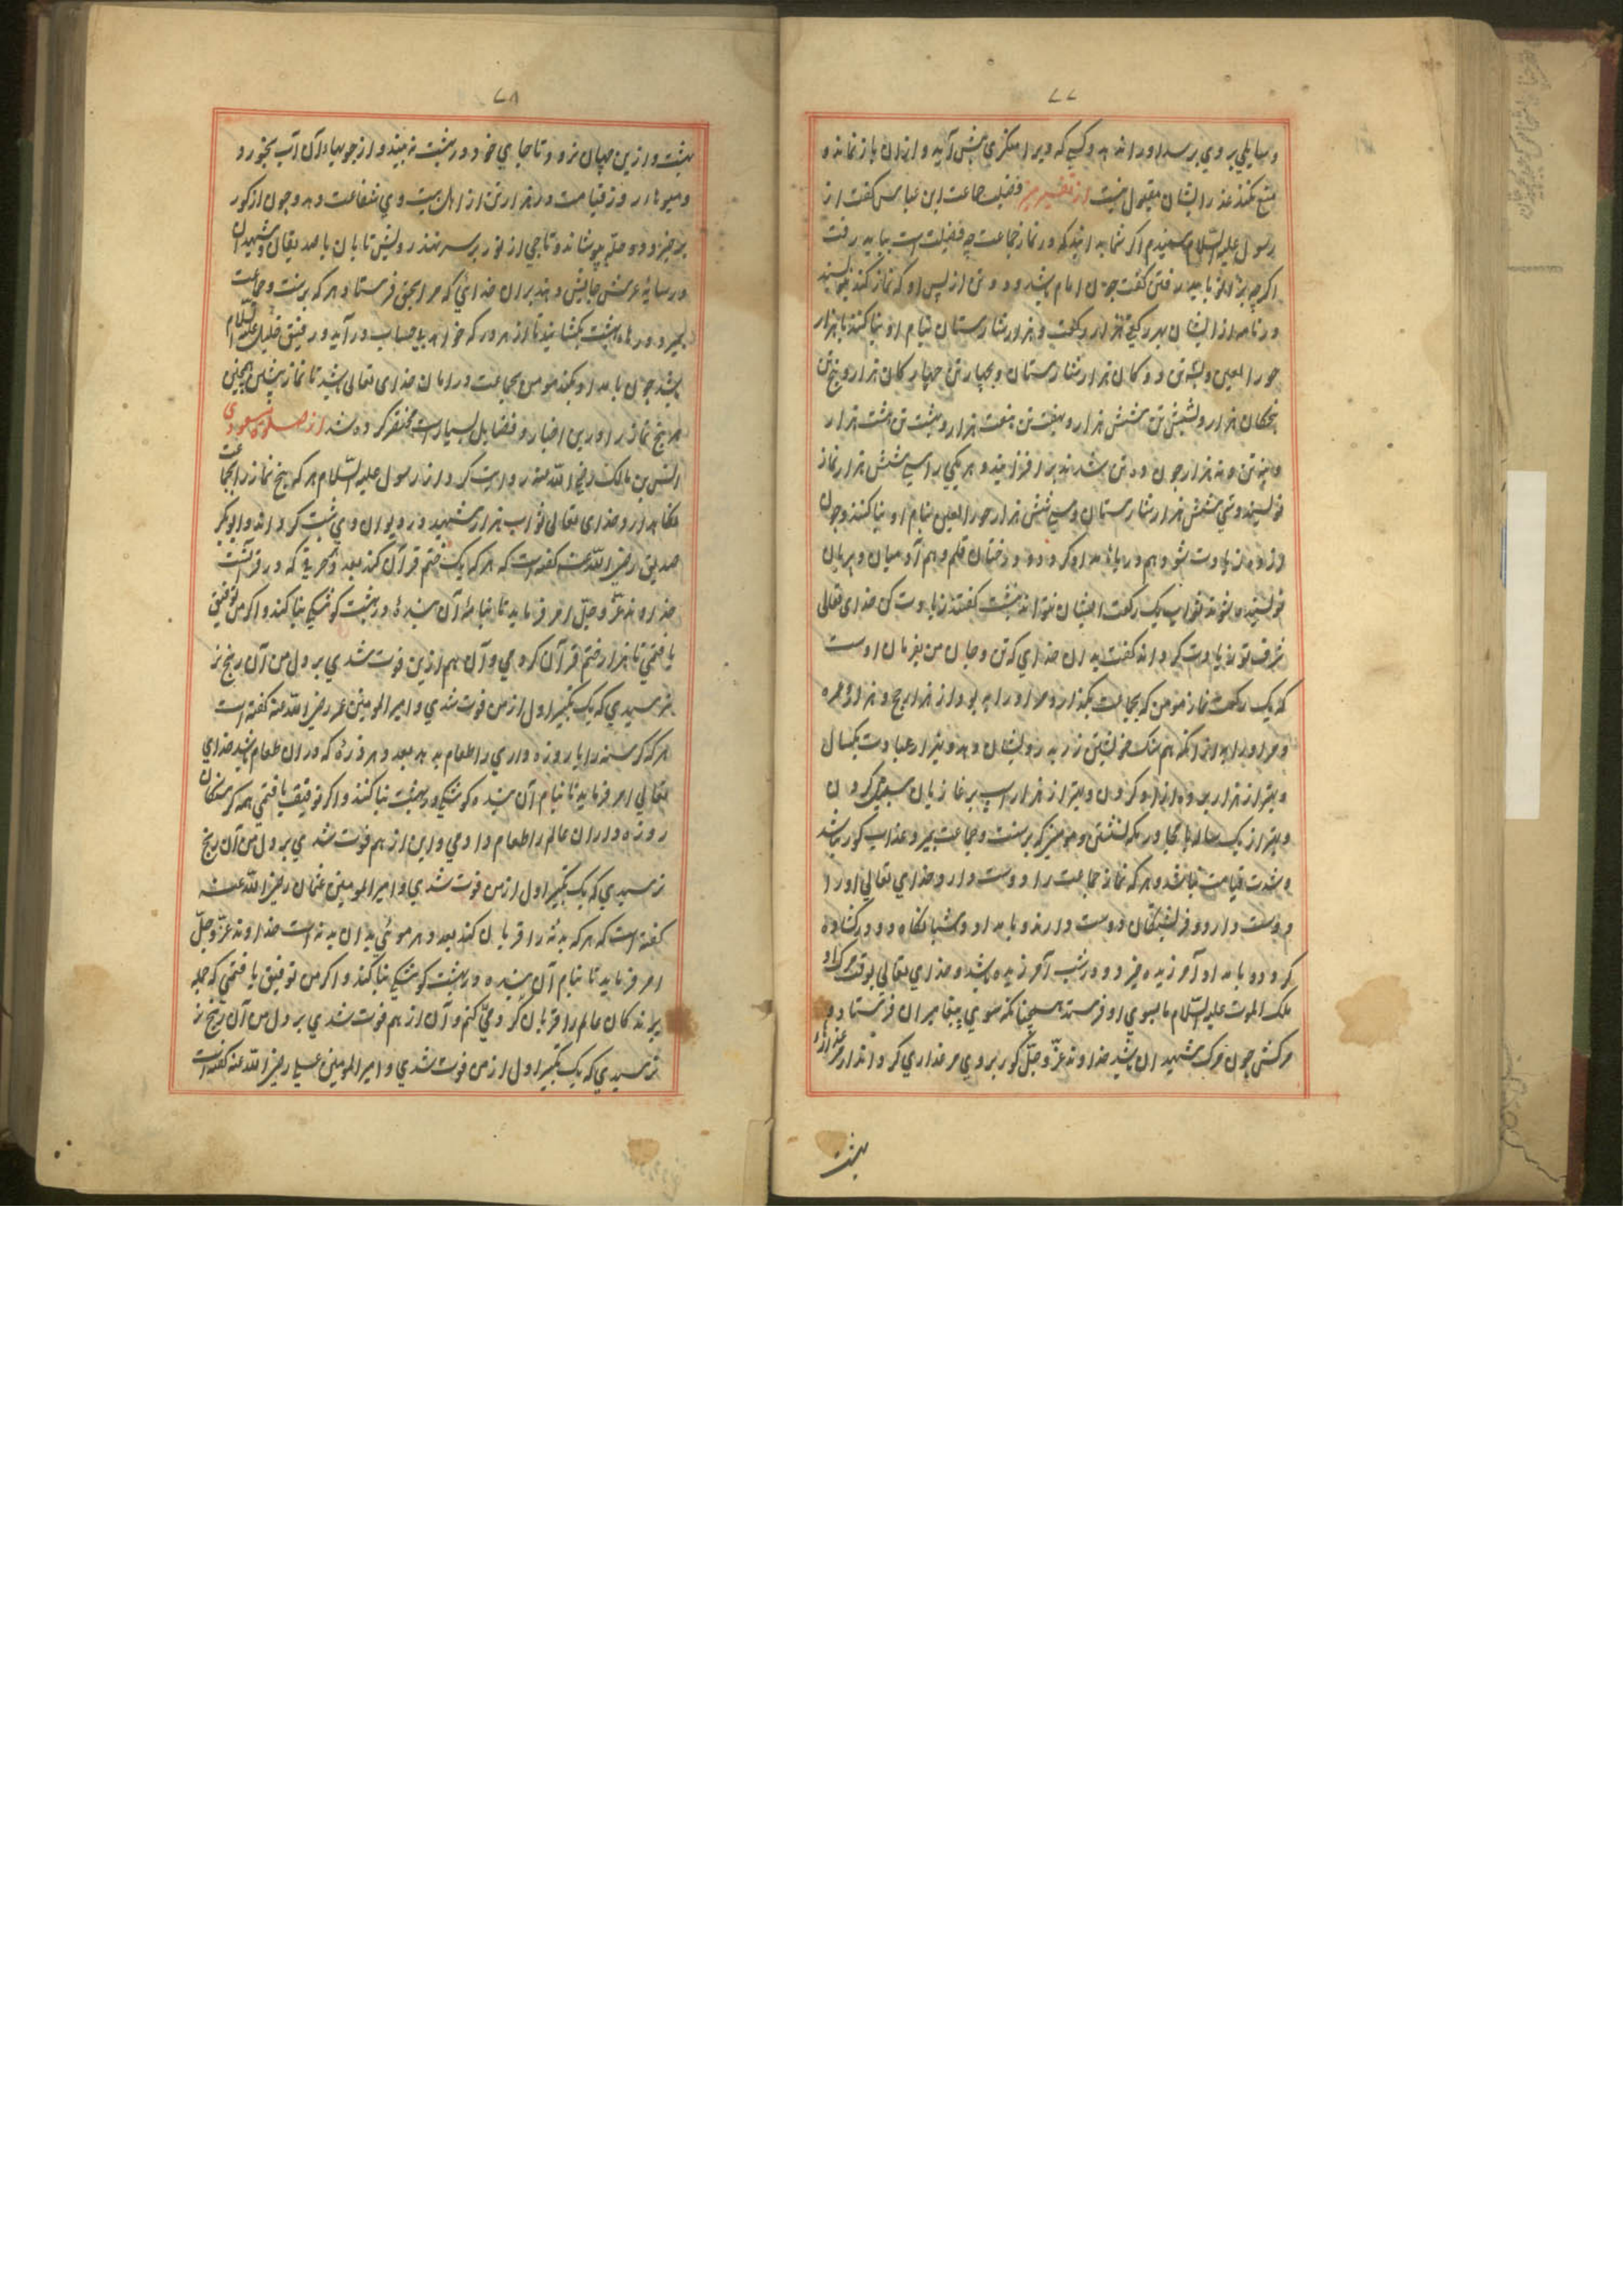 ۷۷
و سایلی بر وی برسد او را ندهد و کسی که ویرا منکری پیش آید و از آن باز نماند و
منع نکند عذر ایشان مقبول نیست از تفسیر فضیلت جماعت ابن عباس گفت از
رسول علیه السلام شنیدم اگر شما بدانید که در نماز جماعت چه فضیلت است بیایید رفت
اگر چه بزانو باید رفتن گفت چون امام باشد و دو تن از پس او که نماز کنند بنویسند
در نامه از ایشان بهر رکعتی هزار رکعت و هزار شارستان بنام او بنا کنند با هزار
حور العین و سه تن دوکان هزار شارستان و بچهار تن چهارکان هزار و پنج تن
پنجکان هزار و بشش تن شش هزار و بهفت تن هفت هزار و بهشت تن هشت هزار
و بنه تن نه هزار چون ده تن شدند برافزایند و هر یکی را سی شش هزار نماز
نویسند و سی شش هزار شارستان و سی شش هزار حور العین بنام او بنا کنند و چون
از ده زیادت شود هم دریاها مداد گردد و درختان قلم و هم آدمیان و پریان
نویسنده نتوانند ثواب یک رکعت ایشان نتوانند نبشت گفتند زیادت کن خدای تعالی
شرف تو زیادت گرداند گفت بدان خدای که تن و جان من بفرمان اوست
که یک رکعت نماز مومن که بجماعت بگذارد مر او را به بود از هزار حج و هزار عمره
و مر او را به از آنکه هم سنگ خویشتن زر به درویشان دهد و بهتر از عبادت یکسال
و بهتر از هزار برده آزاد کردن و بهتر از هزار اسپ بر غازیان سبیل کردن
و بهتر از یک ساله با مجاور مکه نشستن و مومنی که بر سنت و جماعت بمیرد عذاب گور نباشد
و شدت قیامت نباشد و هر که نماز جماعت را دوست دارد خدای تعالی او را
دوست دارد و فرشتگان دوست دارند و بامداد و شبانگاه دو در گشاده
گردد بامداد آمرزیده خیزد و در شب آمرزیده باشد و خدای تعالی بوقت مرگ او
ملک الموت علیه السلام را بسوی او فرستد همچنانکه سوی پیغامبران فرستاد و
مرگش چون مرگ شهیدان باشد خداوند عز و جل گور بر وی مرغزاری گرداند از
بهشت
۷۸
بهشت و ازین جهان نرود تا جای خود در بهشت نبیند و از جویهاء آن آب بخورد و
و میوها و روز قیامت در هزار تن از اهل بیت وی شفاعت دهد و چون از گور
برخیزد دو حله بپوشاند و تاجی از نور بر سر نهند رویش تابان با صدیقان و شهیدان
در سایه عرش جایش دهد بدان خدائی که مرا بحق فرستاد هر که بر سنت و جماعت
بمیرد درهاء بهشت بگشایند تا از هر در که خواهد بی حساب درآید و رفیق خلیل علیه السلام
باشد چون بامداد بکند مومن بجماعت در امان خدای تعالی باشد تا نماز پیشین همچنین
هر پنج نماز را و درین اخبار و فضایل بسیار است مختصر کرده شد از صلوة مسعودی
انس بن مالک رضی الله عنه روایت کرد از رسول علیه السلام هر که پنج نماز را بجماعت
بگذارد خدای تعالی ثواب هزار شهید در دیوان وی ثبت گرداند و ابوبکر
صدیق رضی الله عنه گفته است که هر که یک ختم قرآن کند بعدد هر حرفی که در قرآنست
خداوند عز و جل امر فرماید تا بنام آن بنده در بهشت کوشکی بنا کنند و اگر من توفیق
یافتمی تا هزار ختم قرآن کردمی و آن هم ازین فوت شدی بر دل من آن رنج نـ
نرسیدی که یک تکبیر اول از من فوت شدی و امیر المومنین عمر رضی الله عنه گفته است
هر که گرسنه را یا روزه داری را طعام بدهد بعدد هر ذره که در آن طعام باشد خدای
تعالی امر فرماید تا بنام آن بنده کوشکی در بهشت بنا کنند و اگر توفیق یافتمی همه گرسنگان
روزه داران عالم را طعام دادمی و این از هم فوت شدی بر دل من آن رنج
نرسیدی که یک تکبیر اول از من فوت شدی و امیر المومنین عثمان رضی الله عنه
گفته است که هر که بدنه را قربان کند بعدد هر موئی بدان بدنه است خداوند عز و جل
امر فرماید تا بنام آن بنده در بهشت کوشکی بنا کنند و اگر من توفیق یافتمی که جمله
بدنه‌کان عالم را قربان کردمی و آن از هم فوت شدی بر دل من آن رنج نـ
نرسیدی که یک تکبیر اول از من فوت شدی و امیر المومنین علی رضی الله عنه گفته است